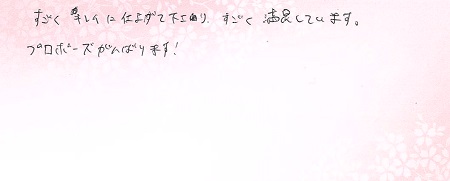 すごくキレイに仕上げて下さり、すごく満足しています。
プロポーズがんばります!